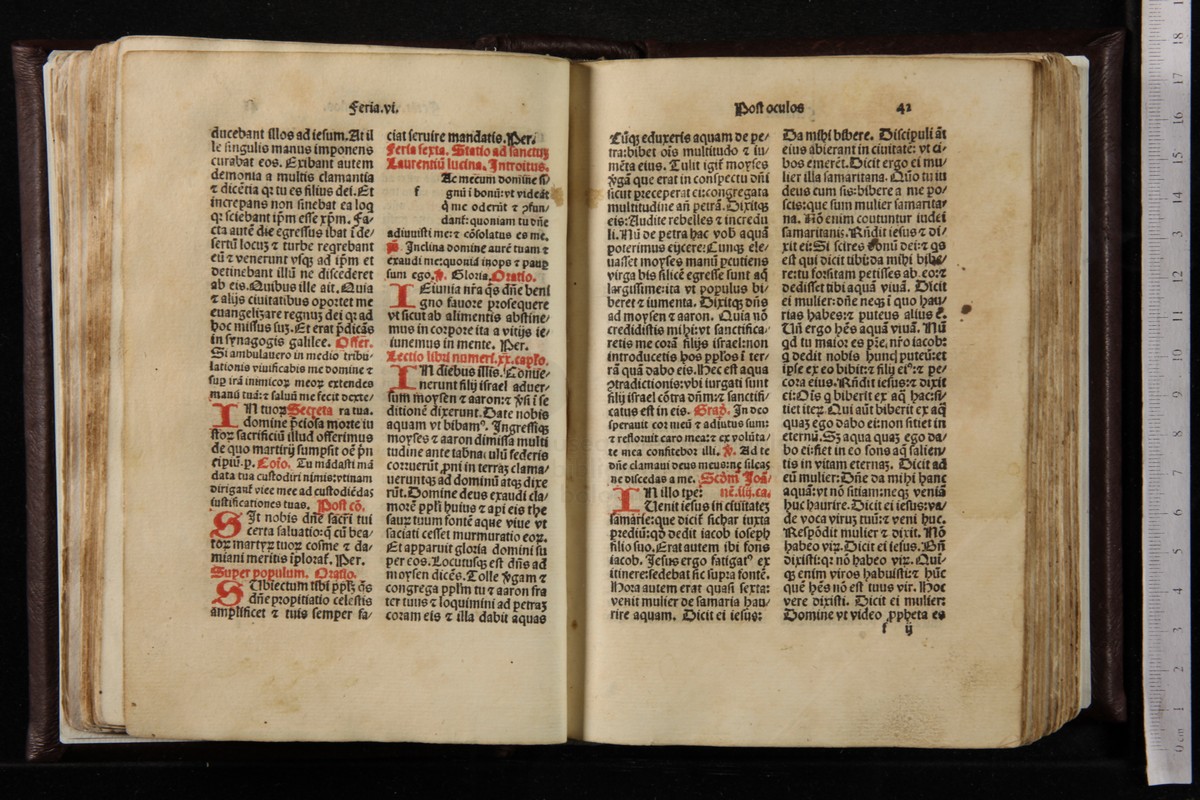 Feria.vi.
ducebant illos ad iesum. At il
le singulis manus imponens
curabat eos. Exibant autem
demonia a multis clamantia
⁊ dicētia qꝛ tu es filius dei. Et
increpans non sinebat ea loq
qꝛ sciebant ip̄m esse xp̄m. Fa⸗
cta autē die egressus ibat ī de⸗
sertū locuꝫ ⁊ turbe reqrebant
eū ⁊ venerunt vsqꝫ ad ip̄m et
detinebant illū ne discederet
ab eis. Quibus ille ait. Quia
⁊ alijs ciuitatibus oportet me
euangelizare regnuꝫ dei qꝛ ad
hoc missus suꝫ. Et erat p̄dicās
in synagogis galilee. Offer.
Si ambulauero in medio tribu⸗
lationis viuificabis me domine ⁊
suꝑ irā inimicoꝝ meoꝝ extendes
manū tuā: ⁊ saluū me fecit dexte⸗
IN tuoꝝ Secreta ra tua.
domine p̄ciosa morte iu
stoꝝ sacrificiū illud offerimus
de quo martirij sumpsit oē p̄n
cipiū. p. Cōio. Tu mādasti mā
data tua custodiri nimis: vtinam
dirigant̉ viee mee ad custodiēdas
iustificationes tuas. Post cō.
SIt nobis dn̄e sacr̄i tui
certa saluatio: q̄ cū bea⸗
toꝝ martyꝝ tuoꝝ cosme ⁊ da⸗
miani meritis īplorat̉. Per.
Super populum. Oratio.
SUbiectum tibi ppl̄ꝫ q̄s
dn̄e propitiatio celestis
amplificet ⁊ tuis semper fa⸗
ciat seruire mandatis. Per.
Feria sexta. Statio ad sanctuꝫ
Laurentiū lucina. Introitus.
Ac mecum domine si⸗
f gnū ī bonū: vt videāt
q̄ me oderūt ⁊ ꝯfun⸗
dant̉: quoniam tu dn̄e
adiuuisti me: ⁊ cōsolatus es me.
ps̄. Inclina domine aurē tuam ⁊
exaudi me: quoniā inops ⁊ paup̄
sum ego. v̄. Gloria. Oratio.
IEiunia nr̄a q̄s dn̄e beni
gno fauore prosequere
vt sicut ab alimentis abstine⸗
mus in corpore ita a vitijs ie⸗
iunemus in mente. Per.
Lectio libri numeri. xx. cap̄lo.
IN diebus illis. Conue⸗
nerunt filij israel aduer⸗
sum moysen ⁊ aaron: ⁊ vn̄i ī se
ditionē dixerunt. Date nobis
aquam vt bibamꝰ. Ingressiqꝫ
moyses ⁊ aaron dimissa multi
tudine ante tabnaculū federis
corruerūt ꝓni in terraꝫ clama⸗
ueruntqꝫ ad dominū atqꝫ dixe
rūt. Domine deus exaudi cla⸗
morē ppl̄i huius ⁊ api eis the
sauꝝ tuum fontē aque viue vt
saciati cesset murmuratio eoꝝ.
Et apparuit gloria domini su
per eos. Locutusqꝫ est dn̄s ad
moysen dicēs. Tolle v̄gam ⁊
congrega ppl̄m tu ⁊ aaron fra
ter tuus ⁊ loquimini ad petraꝫ
coram eis ⁊ illa dabit aquas
Post oculos 42
Cūqꝫ eduxeris aquam de pe⸗
tra: bibet oīs multitudo ⁊ iu⸗
mēta eius. Tulit igit̉ moyses
v̄gā que erat in conspectu dn̄i
sicut preceperat ei: congregata
multitudine an̄ petrā. Dixitqꝫ
eis: Audite rebelles ⁊ incredu
li. Nū de petra hac vob̄ aquā
poterimus eijcere: Cunqꝫ ele⸗
uasset moyses manū pcutiens
virga bis silicē egresse sunt aq̄
largissime: ita vt populus bi⸗
beret ⁊ iumenta. Dixitqꝫ dn̄s
ad moysen ⁊ aaron. Quia nō
credidistis mihi: vt sanctifica⸗
retis me corā filijs israel: non
introducetis hos pp̄los ī ter⸗
rā quā dabo eis. Hec est aqua
ꝯtradictionis: vbi iurgati sunt
filij israel cōtra dn̄m: ⁊ sanctifi⸗
catus est in eis. Grad̄. In deo
sperauit cor meū ⁊ adiutus sum:
⁊ refloruit caro mea: ⁊ ex volūta⸗
te mea confitebor illi. v̄. Ad te
dn̄e clamaui deus meus: ne sileas
ne discedas a me. Scd̄m Joā⸗
IN illo tpe: nē. iiij. ca.
Uenit iesus in ciuitateꝫ
samarie: que dicit̉ sichar iuxta
prediū: qd̄ dedit iacob ioseph
filio suo. Erat autem ibi fons
iacob. Jesus ergo fatigatꝰ ex
itinere: sedebat sic supra fontē.
Hora autem erat quasi sexta:
venit mulier de samaria hau⸗
rire aquam. Dicit ei iesus:
Da mihi bibere. Discipuli āt
eius abierant in ciuitatē: vt ci⸗
bos emerēt. Dicit ergo ei mu⸗
lier illa samaritana. Quō tu iu
deus cum sis: bibere a me po⸗
scis: que sum mulier samarita⸗
na. Nō enim coutuntur iudei
samaritanis. Rn̄dit iesus ⁊ di⸗
xit ei: Si scires donū dei: ⁊ qs
est qui dicit tibi: da mihi bibe⸗
re: tu forsitam petisses ab. eo: ⁊
dedisset tibi aquā viuā. Dicit
ei mulier: dn̄e neqꝫ ī quo hau⸗
rias habes: ⁊ puteus altus ē.
Un̄ ergo hēs aquā viuā. Nū
qd tu maior es pr̄e. nr̄o iacob:
q̄ dedit nobis hunc puteū: et
ipse ex eo bibit: ⁊ filij eiꝰ: ⁊ pe⸗
cora eius. Rn̄dit iesus: ⁊ dixit
ei: Oīs q̄ biberit ex aq̄ hac: si⸗
tiet iteꝝ. Qui aūt biberit ex aq̄
quaꝫ ego dabo ei: non sitiet in
eternū. Sꝫ aqua quaꝫ ego da⸗
bo ei: fiet in eo fons aq̄ salien⸗
tis in vitam eternaꝫ. Dicit ad
eū mulier: Dn̄e da mihi hanc
aquā: vt nō sitiam: neqꝫ veniā
huc haurire. Dicit ei iesus: va⸗
de voca viruꝫ tuū: ⁊ veni huc.
Respōdit mulier ⁊ dixit. Nō
habeo viꝝ. Dicit ei iesus. Bn̄
dixisti: qꝛ nō habeo viꝝ. Qui⸗
qꝫ enim viros habuisti: ⁊ hūc
quē hēs nō est tuus vir. Hoc
vere dixisti. Dicit ei mulier:
Domine vt video ꝓpheta es
f ij